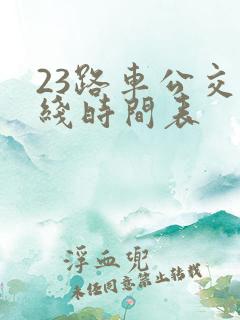 23路車公交
綫時間表
浮血兜
未经同意禁止转载